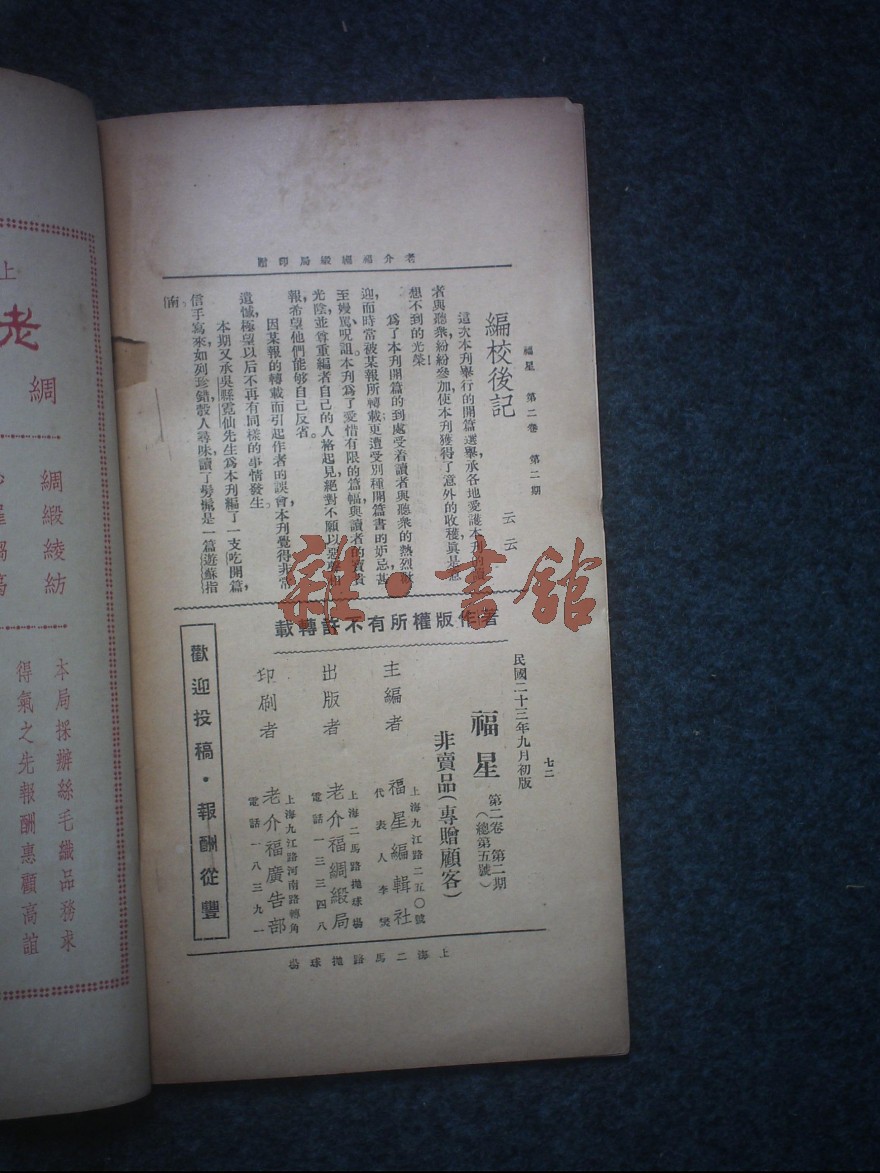 老介福綢緞局印贈
福星 第二卷 第二期
編校後記
云云
這次本刊舉行的開篇選舉,承各地愛護本刊的
者與聽衆紛紛參加,使本刊獲得了意外的收穫,眞是意
想不到的光榮!
爲了本刊開篇的到處受着讀者與聽衆的熱烈歡
迎,而時常被某報所轉載更遭受別種開篇書的妒忌甚
至嫚罵、呪詛。本刊爲了愛惜有限的篇幅與讀者的寶貴
光陰,並尊重編者自己的人格起見,絕對不願以惡
報,希望他們能够自己反省。
因某報的轉載而引起作者的誤會,本刊覺得非常
遺憾,極望以后不再有同樣的事情發生。
本期又承吳縣霓仙先生爲本刊編了一支吃開篇,
信手寫來,如列珍錯,殼人尋味,讀了勞
是一篇遊蘇指
南。
著作版權所有不許轉載
七二
民國二十三年九月初版
福星 第二卷 第二期
(總第五號)
非賣品(專贈顧客)
主編者 福星編輯社
上海九江路二五〇號
代表人 李
出版者 老介福綢緞局
上海二馬路拋球場
電話 一三三四八
印刷者 老介福廣告部
上海九江路河南路轉角
電話 一八三九一
歡迎投稿·報酬從豐
上海二馬路拋球場
上
老
綢
綢緞綾紡
本局採辦絲毛織品務求
得氣之先報酬惠顧高誼
雜·書館